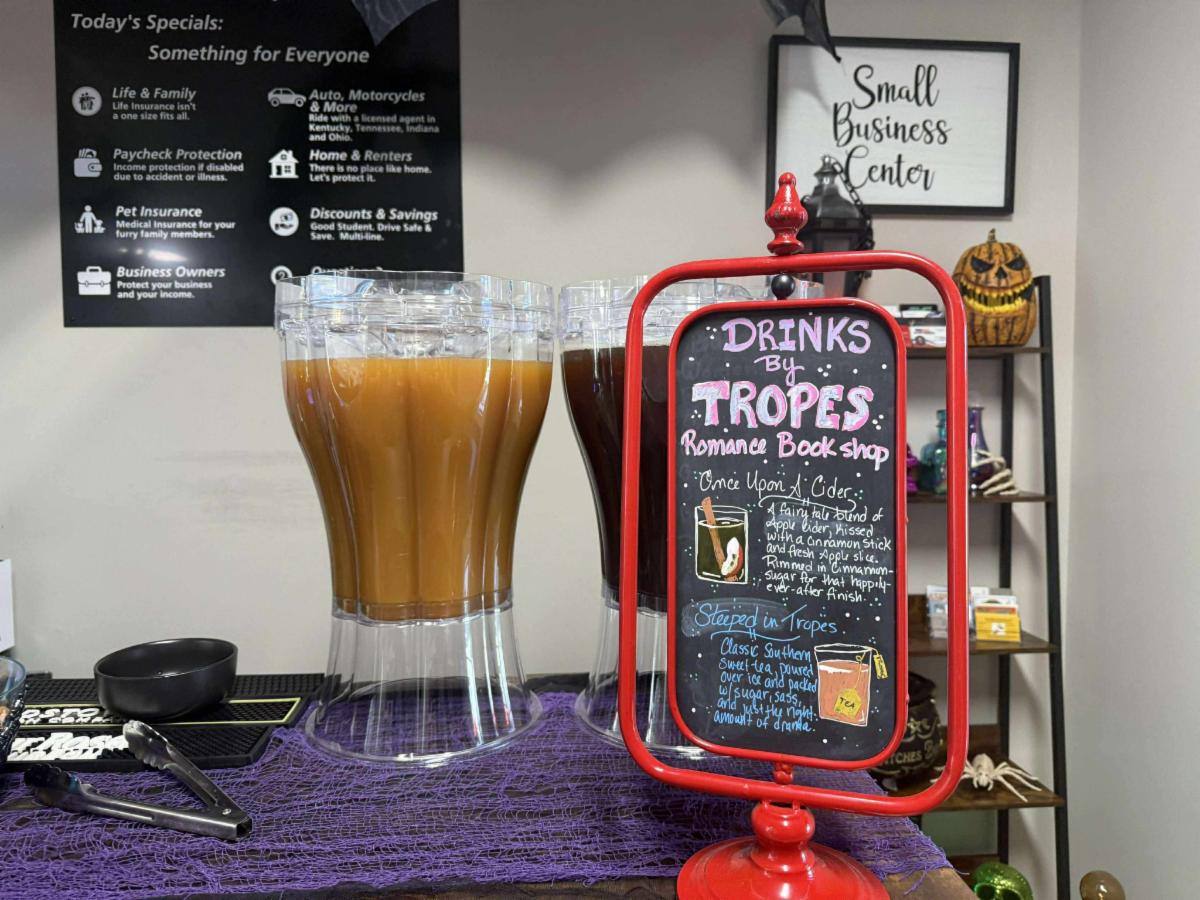 Today's Specials:
Something for Everyone
Life & Family
Life Insurance isn't
a one size fits all.
Paycheck Protection
Income protection if disabled
due to accident or illness.
Pet Insurance
Medical Insurance for your
furry family members.
Business Owners
Protect your business
and your income.
Auto, Motorcycles
& More
Ride with a licensed agent in
Kentucky, Tennessee, Indiana
and Ohio.
Home & Renters
There is no place like home.
Let's protect it.
Discounts & Savings
Good Student. Drive Safe &
Save. Multi-line.
Small
Business
Center
DRINKS
By
TROPES
Romance Bookshop
Once Upon A Cider
A fairy tale blend of
Apple Cider, kissed
with a cinnamon stick
and fresh Apple slice.
Rimmed in Cinnamon-
sugar for that happily-
ever-after finish.
Steeped in Tropes
Classic Southern
sweet tea, poured
over ice and packed
w/ sugar, sass,
and just the right
amount of drama.
TEA